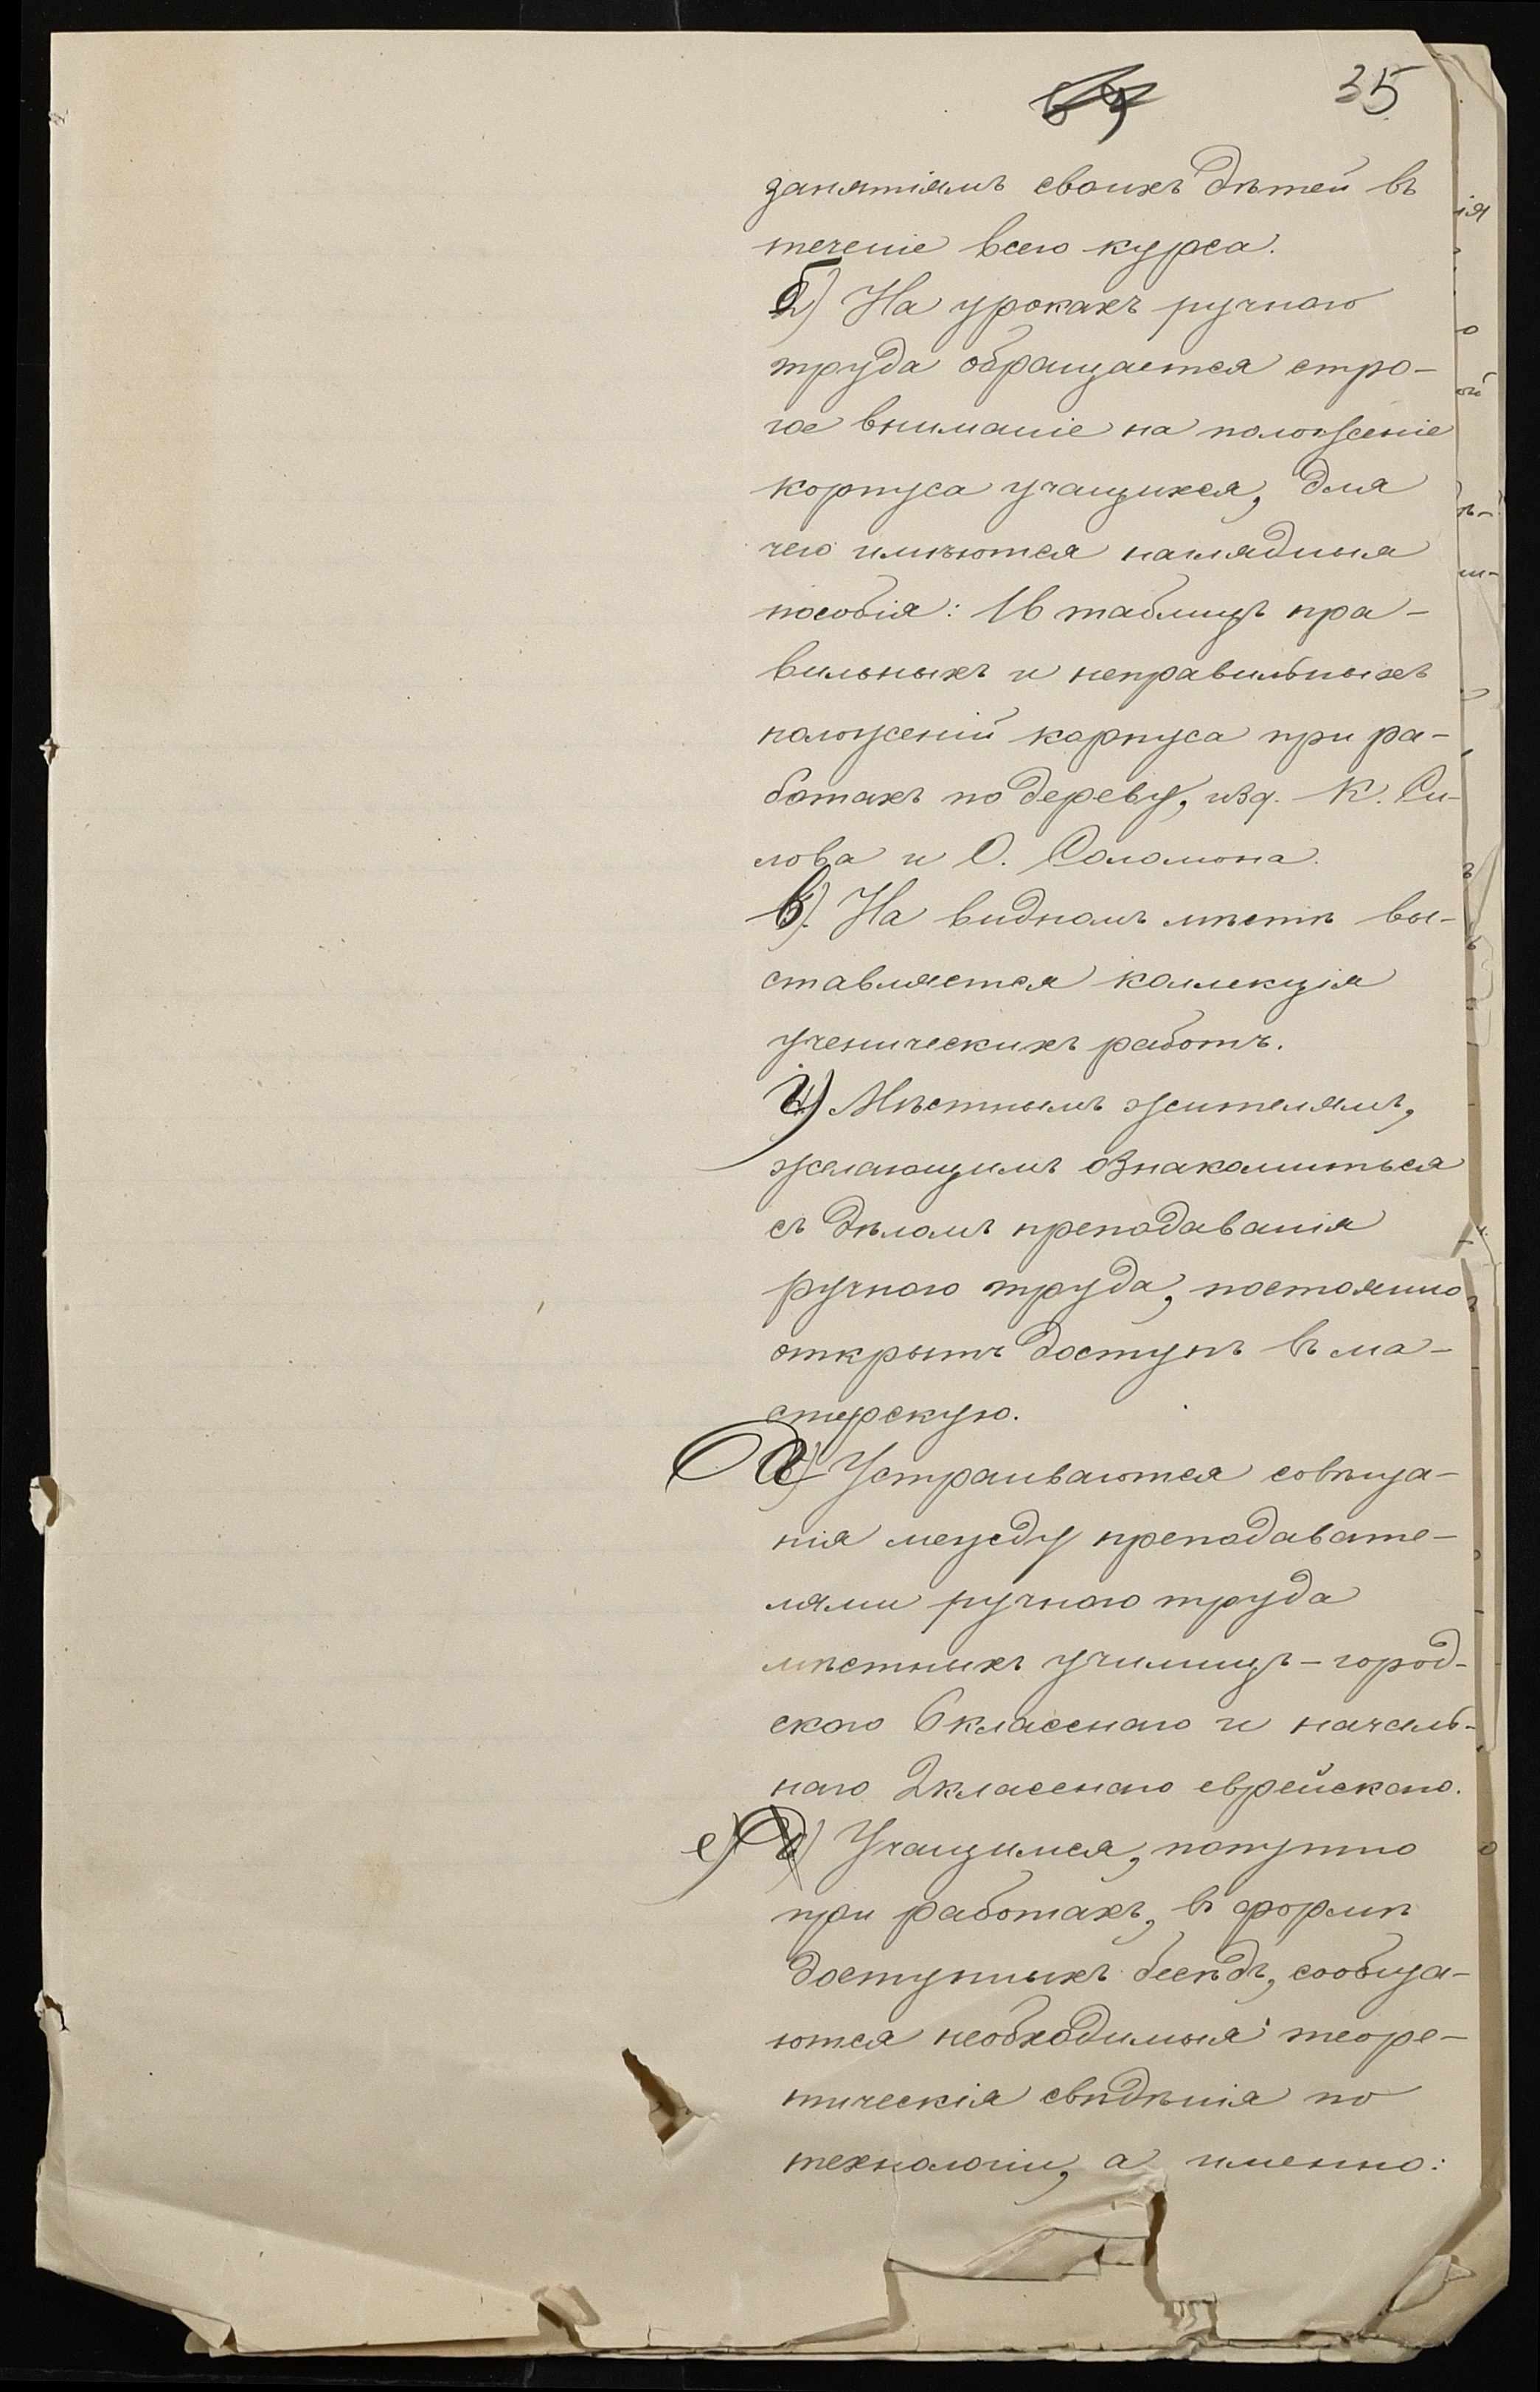 35
занятіямъ своихъ дѣтей въ
теченіе всего курса.
б) На урокахъ ручного
труда обращается стро-
гое вниманіе на положеніе
корпуса учащихся, для
чего имѣются наглядныя
пособія: 16 таблицъ пра-
вильныхъ и неправильныхъ
положеній корпуса при ра-
ботахъ по дереву, изд. К. Си-
лова и О. Соломона.
в). На видномъ мѣстѣ вы-
ставляется коллекція
ученическихъ работъ.
г) Мѣстнымъ жителямъ,
желающимъ ознакомиться
съ дѣломъ преподаванія
ручного труда, постоянно
открытъ доступъ въ ма-
стерскую.
д) Устраиваются совѣща-
нія между преподавате-
лями ручного труда
мѣстныхъ училищъ - город-
ского 6классного и началь-
наго 2классного еврейского.
е) Учащимся, попутно
при работахъ, въ формѣ
доступныхъ бесѣдъ, сообща-
ются необходимыя теоре-
тическія свѣдѣнія по
технологіи, а именно: